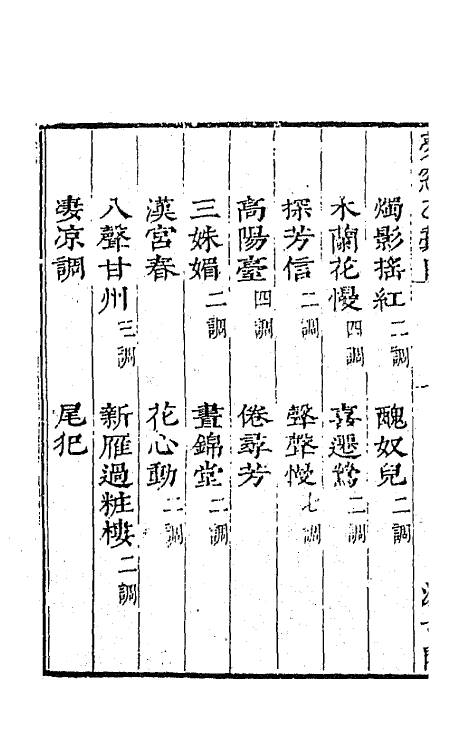 燭影搖紅二調 醜奴兒二調
木蘭花慢四調 喜遷鶯二調
探芳信二調 聲聲慢七調
高陽臺四調 倦尋芳
三姝媚二調 晝錦堂二調
漢宮春 花心動二調
八聲甘州三調 新雁過粧樓二調
淒凉調 尾犯